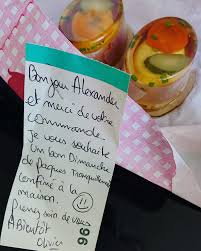 Bonjour Alexander
et merci de votre
commande.
Je vous souhaite
Un bon Dimanche
de Paques tranquillement
confiné à la
maison.
Prenez soin de vous
A Bientôt
Olivier
96